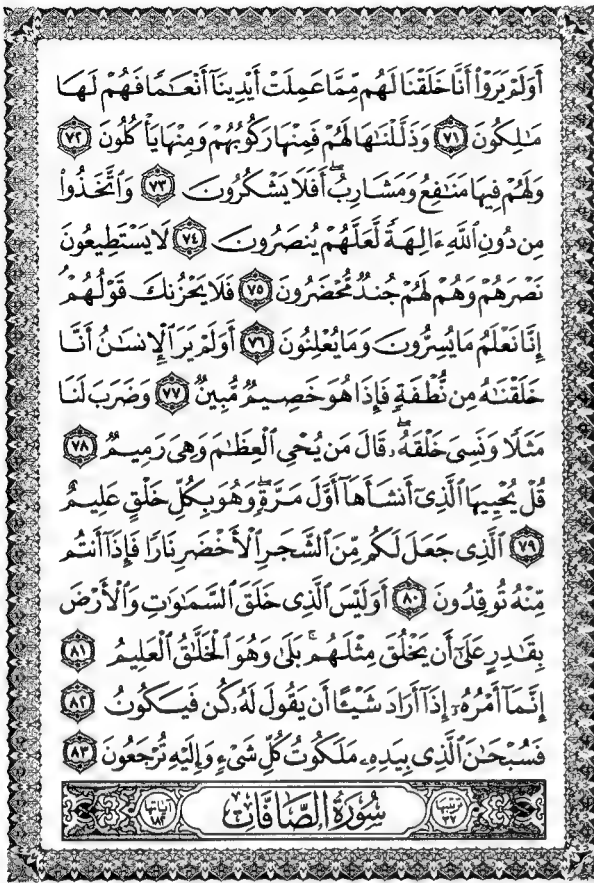 أَوَلَمْ يَرَوْا۟ أَنَّا خَلَقْنَا لَهُم مِّمَّا عَمِلَتْ أَيْدِينَآ أَنْعَـٰمًا فَهُمْ لَهَا
مَـٰلِكُونَ ٧١ وَذَلَّلْنَـٰهَا لَهُمْ فَمِنْهَا رَكُوبُهُمْ وَمِنْهَا يَأْكُلُونَ ٧٢
وَلَهُمْ فِيهَا مَنَـٰفِعُ وَمَشَارِبُ ۖ أَفَلَا يَشْكُرُونَ ٧٣ وَٱتَّخَذُوا۟
مِن دُونِ ٱللَّهِ ءَالِهَةً لَّعَلَّهُمْ يُنصَرُونَ ٧٤ لَا يَسْتَطِيعُونَ
نَصْرَهُمْ وَهُمْ لَهُمْ جُندٌ مُّحْضَرُونَ ٧٥ فَلَا يَحْزُنكَ قَوْلُهُمْ ۘ
إِنَّا نَعْلَمُ مَا يُسِرُّونَ وَمَا يُعْلِنُونَ ٧٦ أَوَلَمْ يَرَ ٱلْإِنسَـٰنُ أَنَّا
خَلَقْنَـٰهُ مِن نُّطْفَةٍ فَإِذَا هُوَ خَصِيمٌ مُّبِينٌ ٧٧ وَضَرَبَ لَنَا
مَثَلًا وَنَسِىَ خَلْقَهُۥ ۖ قَالَ مَن يُحْىِ ٱلْعِظَـٰمَ وَهِىَ رَمِيمٌ ٧٨
قُلْ يُحْيِيهَا ٱلَّذِىٓ أَنشَأَهَآ أَوَّلَ مَرَّةٍ ۖ وَهُوَ بِكُلِّ خَلْقٍ عَلِيمٌ
٧٩ ٱلَّذِى جَعَلَ لَكُم مِّنَ ٱلشَّجَرِ ٱلْأَخْضَرِ نَارًا فَإِذَآ أَنتُم
مِّنْهُ تُوقِدُونَ ٨٠ أَوَلَيْسَ ٱلَّذِى خَلَقَ ٱلسَّمَـٰوَٰتِ وَٱلْأَرْضَ
بِقَـٰدِرٍ عَلَىٰٓ أَن يَخْلُقَ مِثْلَهُم ۚ بَلَىٰ وَهُوَ ٱلْخَلَّـٰقُ ٱلْعَلِيمُ ٨١
إِنَّمَآ أَمْرُهُۥٓ إِذَآ أَرَادَ شَيْـًٔا أَن يَقُولَ لَهُۥ كُن فَيَكُونُ ٨٢
فَسُبْحَـٰنَ ٱلَّذِى بِيَدِهِۦ مَلَكُوتُ كُلِّ شَىْءٍ وَإِلَيْهِ تُرْجَعُونَ ٨٣
ترتيبها ٣٧ سُورَةُ الصَّافَّاتِ آياتها ١٨٢